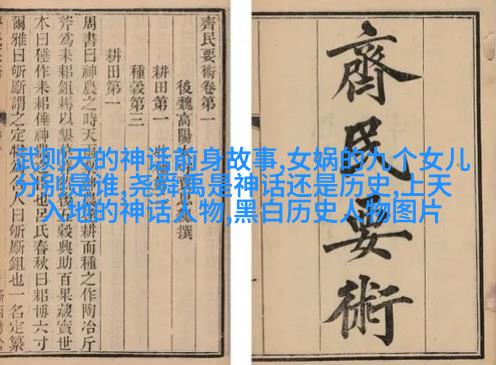 齊民要術
齊民要術卷第一
後魏高陽
撰
耕田第一
種穀第三
耕田第一
周書曰神農之時天雨
耕而種之作陶冶斤
斧爲耒耜鉏
以墾
五穀興助百果藏實世
本曰倕作耒耜倕神
呂氏春秋曰耜博六寸
爾雅曰斪斸謂之定
人曰斪斸鉏也一名定纂
武则天的神话前身故事,女娲的九个女儿
分别是谁,尧舜禹是神话还是历史,上天
入地的神话人物,黑白历史人物图片